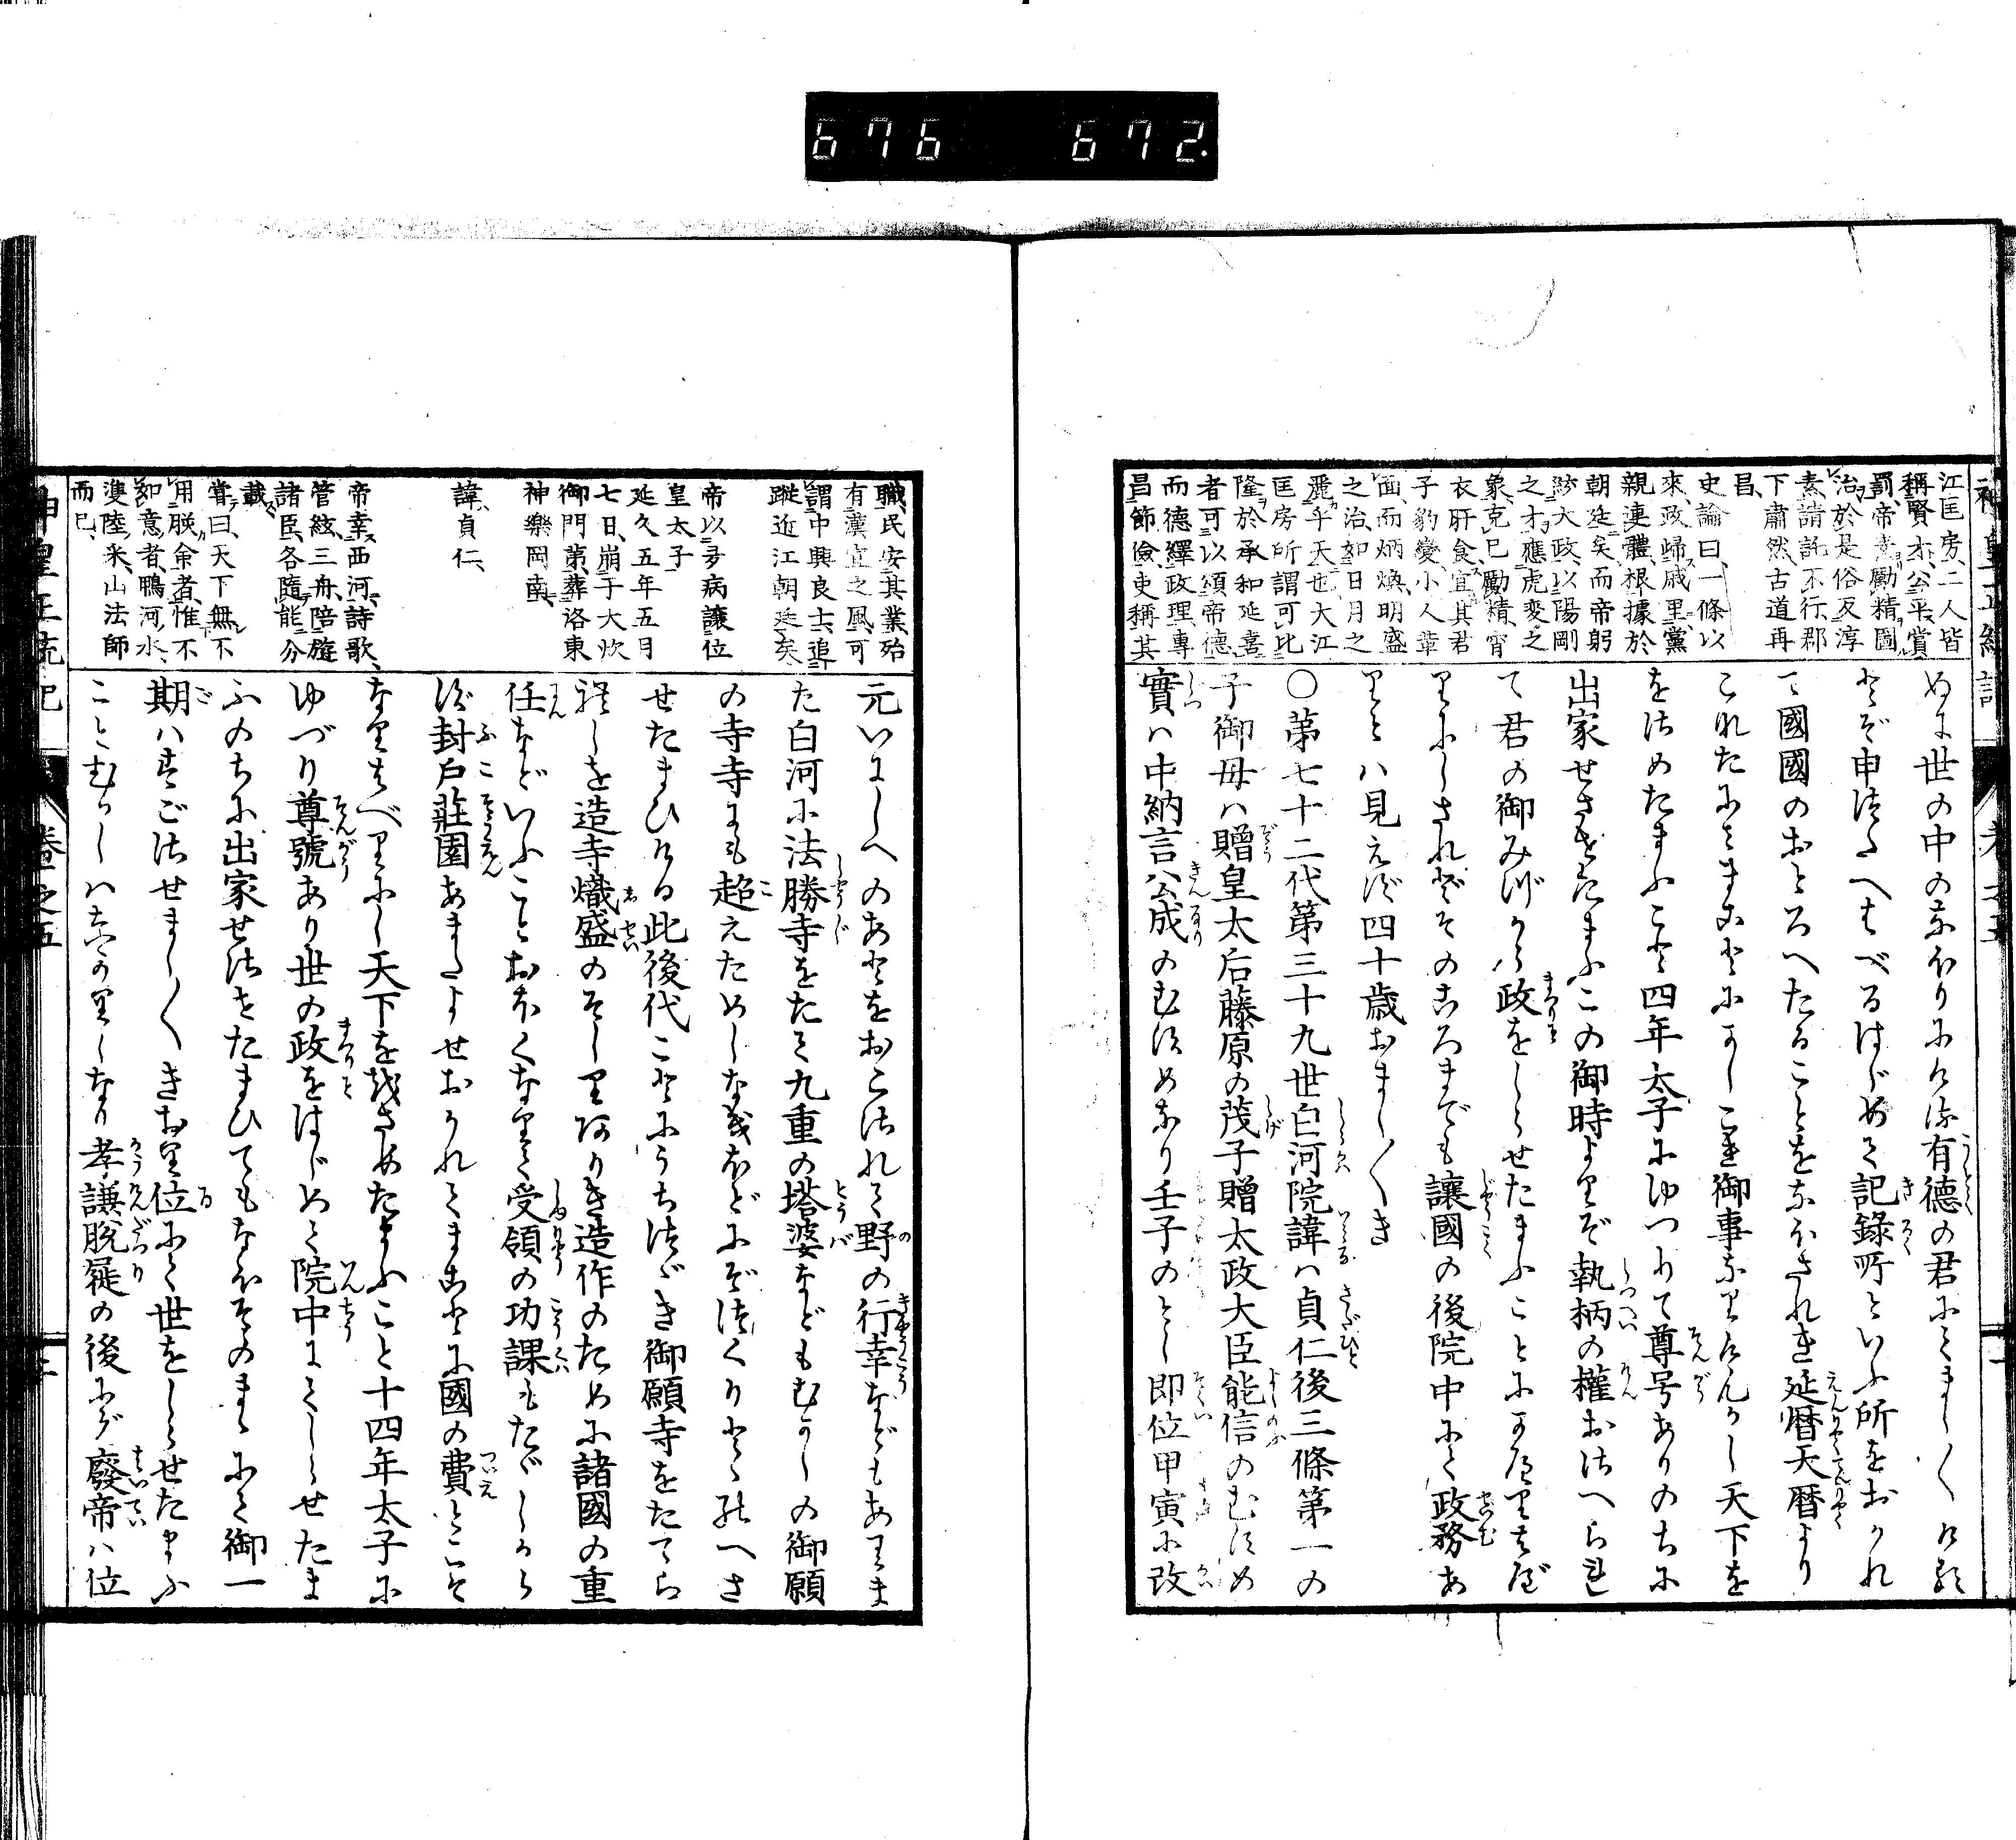 676 672.
江匡房、二人皆
稱賢才、公平賞
罰、帝意勵精圖
治、於是俗反淳
素、請託不行、郡
下肅然、古道再
昌、
史論曰、一條以
來、政歸戚里、黨
親連體、根據於
朝廷矣、而帝躬
大政、以陽剛
之才、應虎変之
象、克己勵精、宵
衣旰食、宜其君
子豹變、小人革
面、而炳煥、明盛
之治、如日月之
麗乎天也、大江
匡房所謂可比
隆於承和延喜
者、可以頌帝德
而德繹政理、專
昌節儉、吏稱其
ぬる世の中のなほりにける有德の君にてましましける
とぞ申つたへはべるはじめて記錄所といふ所をおかれ
て國國のおとろへたることをなほされき延暦天暦より
これたにもまことにかしこき御事なりけんかし天下を
をさめたまふこと四年太子にゆつりて尊号ありのちに
出家せさせたまふこの御時よりぞ執柄の權おさへられ
て君の御みづから政をしらせたまふことにかへりはべ
りにしされどそのころまでも讓國の後院中にて政務あ
りとハ見えず四十歳おましましき
○第七十二代第三十九世白河院諱ハ貞仁後三條第一の
子御母ハ贈皇太后藤原の茂子贈太政大臣能信のむすめ
實ハ中納言公成のむすめなり壬子のとし即位甲寅に改
職、民安其業、殆
有漢宣之風、可
謂中興良士、追
蹤近江朝廷矣、
帝以多病讓位
皇太子
延久五年五月
七日、崩于大炊
御門第、葬洛東
神樂岡南、
諱、貞仁、
帝幸西河、詩歌、
管絃、三舟、陪遊
諸臣、各隨能分
載、
嘗曰、天下無不
用朕命者、惟不
如意者、鴨河水、
雙陸釆、山法師
而已、
元いにしへのあとをおこされて野の行幸などもあり又ま
た白河に法勝寺をたて九重の塔婆などもむかしの御願
の寺寺にも超えためしなきほどにぞつくりととのへさ
せたまひける此後代ごとにうちつづき御願寺をたてら
れしを造寺熾盛のそしりありき造作のために諸國の重
任などいふことおほくなりて受領の功課もただしから
ず封戸莊園あまたよせおかれてまことに國の費とこそ
なりはべりにし天下を治さめたまふこと十四年太子に
ゆづり尊號あり世の政をはじめて院中にてしらせたま
ふのちに出家せさせたまひてもなほそのままにて御一
期ハすごさせましましきおり位にて世をしらせたまふ
ことむかしハなかりしなり孝謙脱屣の後にぞ廢帝ハ位
神皇正統記 卷之五